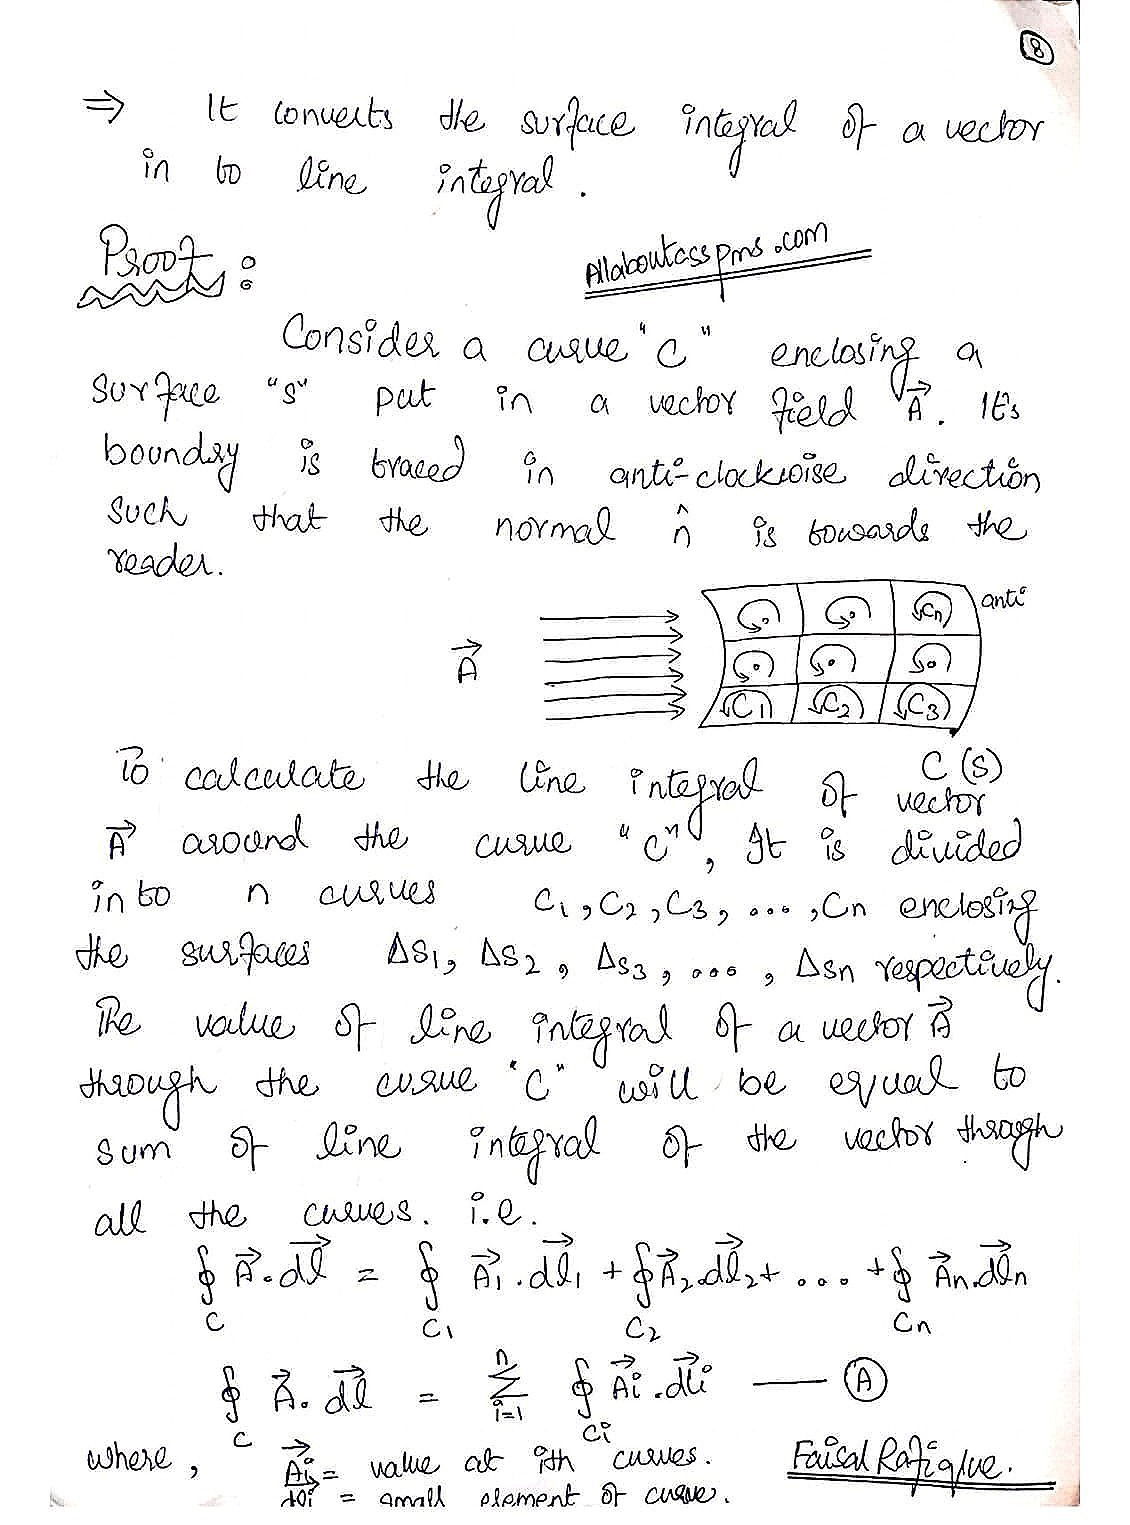 8
⇒ It converts the surface integral of a vector
in to line integral.
Proof:
Allaboutcsspms.com
Consider a curve "C" enclosing a
surface "S" put in a vector field A⃗. It's
boundry is traced in anti-clockwise direction
such that the normal n̂ is towards the
reader.
anti
Cn
A⃗
C1 C2 C3
C (S)
To calculate the line integral of vector
A⃗ around the curve "C", It is divided
into n curves C1, C2, C3, ..., Cn enclosing
the surfaces ΔS1, ΔS2, ΔS3, ..., ΔSn respectively.
The value of line integral of a vector A⃗
through the curve "C" will be equal to
sum of line integral of the vector through
all the curves. i.e.
∮C A⃗.dl⃗ = ∮C1 A⃗1.dl⃗1 + ∮C2 A⃗2.dl⃗2 + ... + ∮Cn A⃗n.dl⃗n
∮C A⃗.dl⃗ = Σ i=1 n ∮Ci A⃗i.dl⃗i — A
where, A⃗i = value at ith curves.
Faisal Rafique.
dli = small element of curve.